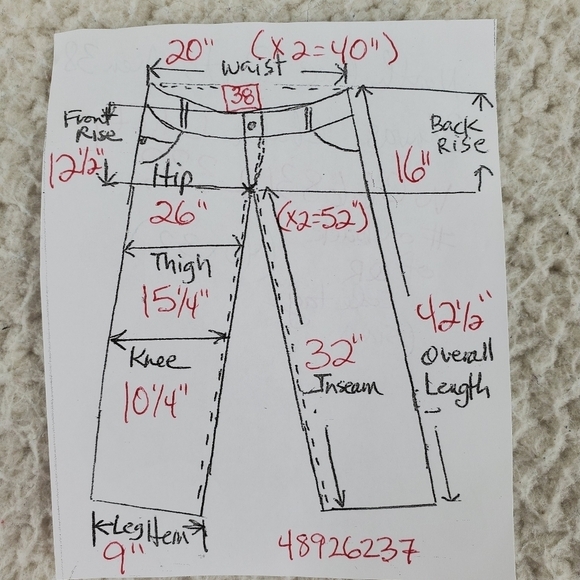 20" (X2=40")
waist
38
Front
Rise
12½"
Back
Rise
16"
Hip
26"
(X2=52")
Thigh
15¼"
Knee
10¼"
32"
Inseam
42½"
Overall
Length
Leg Hem
9"
48926237